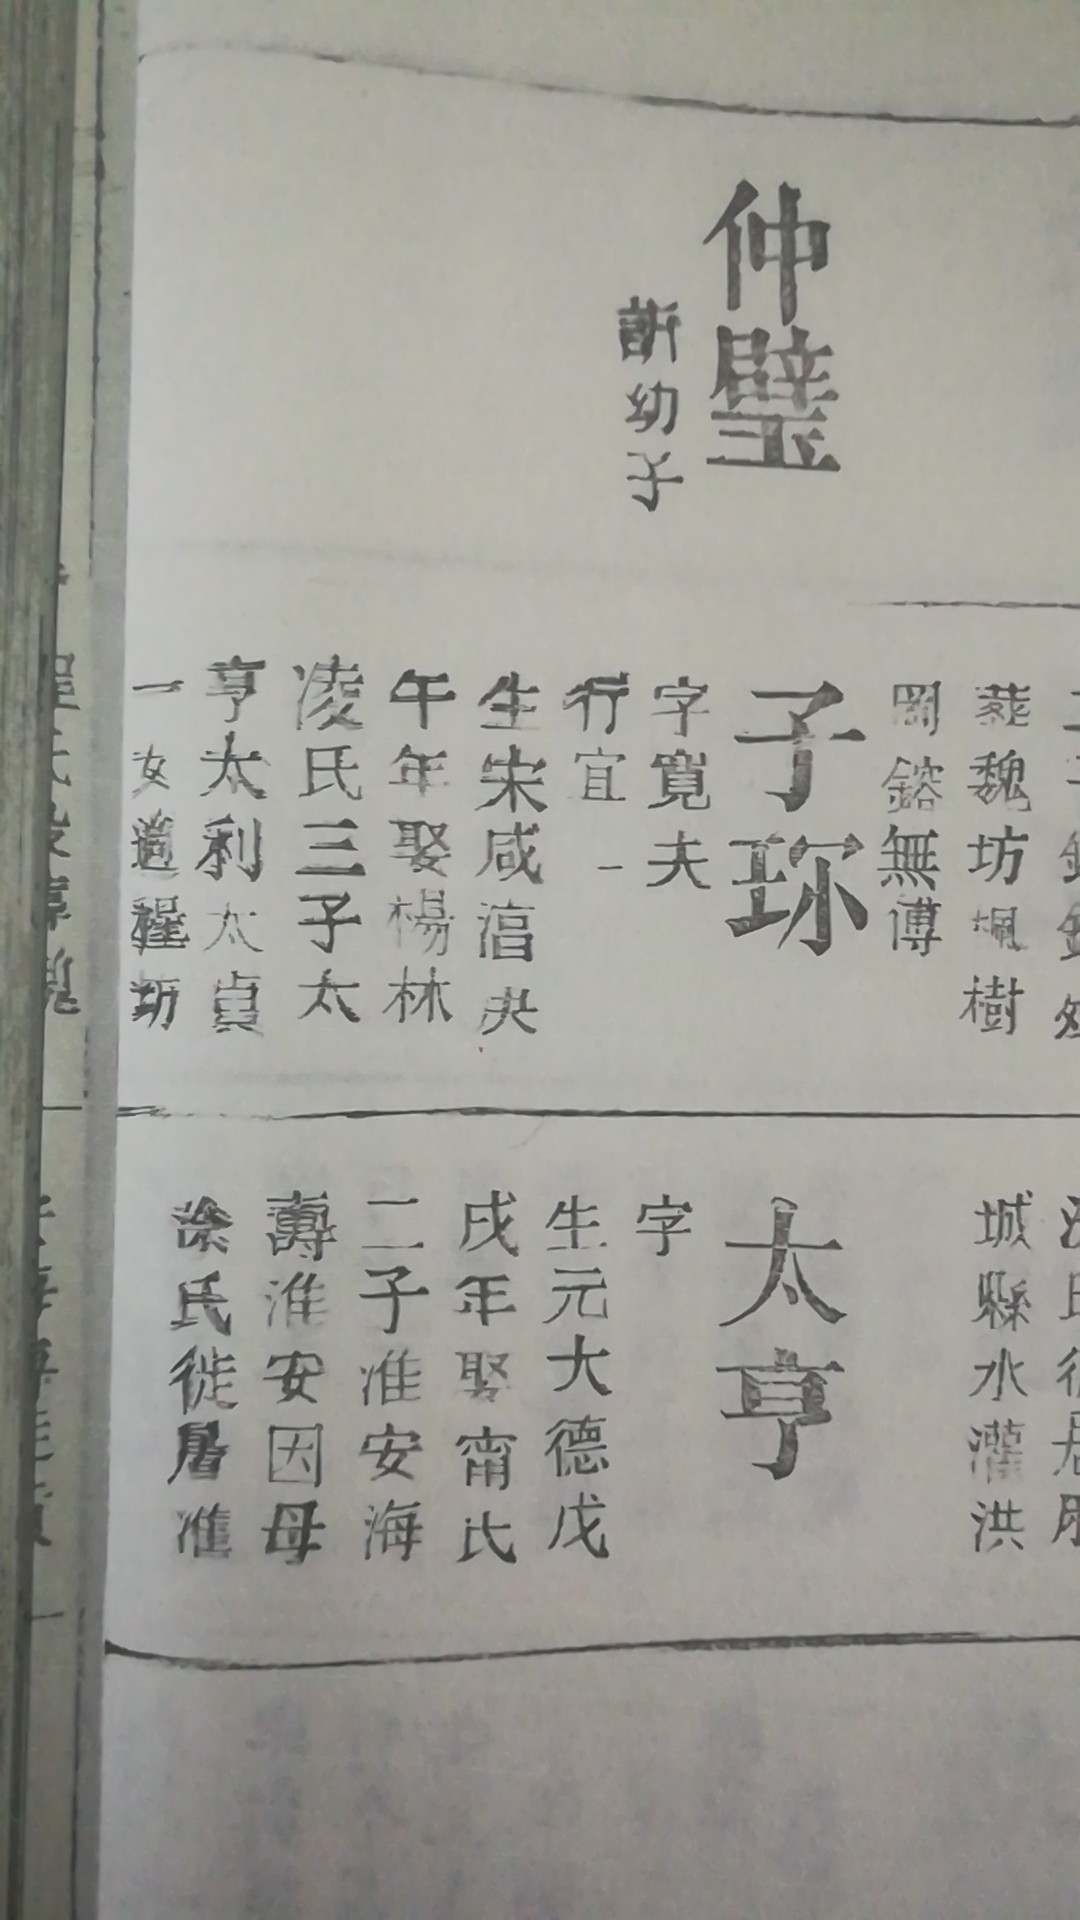 仲璧
訢幼子
葬魏坊楓樹
岡鎔無傳
子珎
字寬夫
行宜一
生宋咸淳庚
午年娶楊林
凌氏三子太
亨太利太貞
一女適程坊
城縣水灌洪
太亨
字
生元大德戊
戌年娶甯氏
二子淮安海
壽淮安因母
徐氏徙居淮